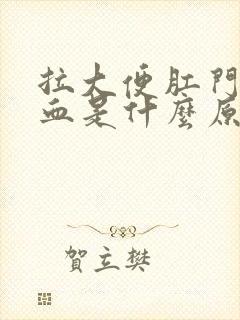 拉大便肛門
血是什麼原
賀立樊